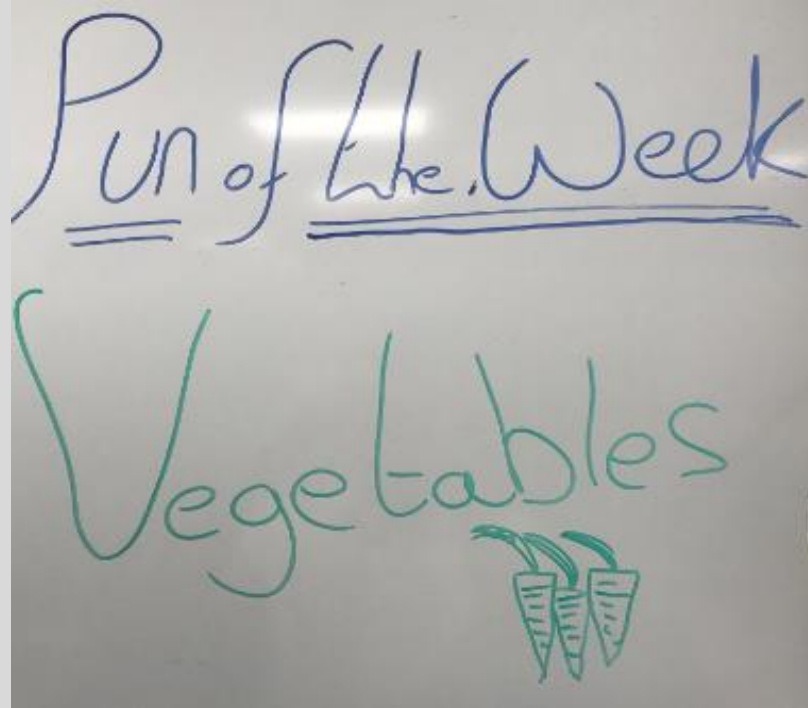 Pun of the Week
Vegetables